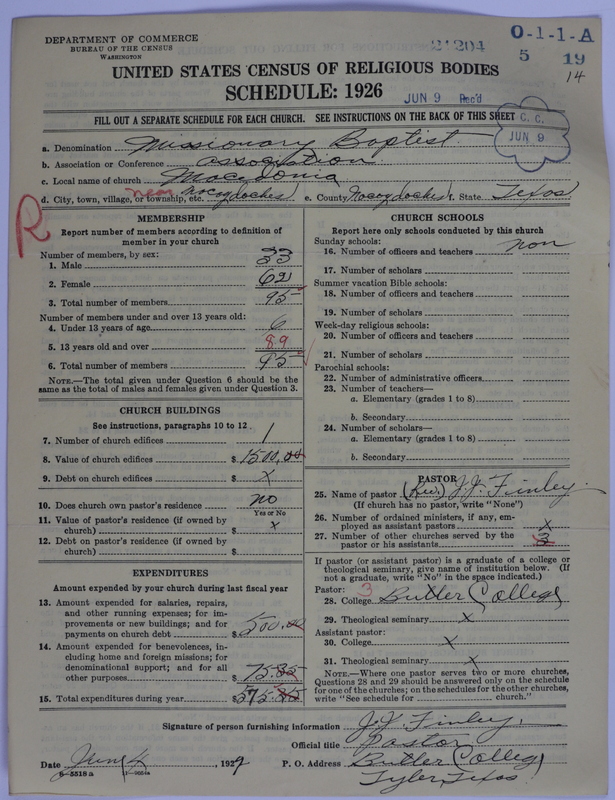 DEPARTMENT OF COMMERCE
BUREAU OF THE CENSUS
WASHINGTON
21204
O-1-1-A
5 19
14
UNITED STATES CENSUS OF RELIGIOUS BODIES
SCHEDULE: 1926
JUN 9 Rec'd
FILL OUT A SEPARATE SCHEDULE FOR EACH CHURCH. SEE INSTRUCTIONS ON THE BACK OF THIS SHEET
C. C.
JUN 9
a. Denomination Missionary Baptist
b. Association or Conference association
c. Local name of church Macedonia
d. City, town, village, or township, etc. near Nacogdoches e. County Nacogdoches f. State Texas
R
MEMBERSHIP
Report number of members according to definition of
member in your church
Number of members, by sex:
1. Male 33
2. Female 62
3. Total number of members 95
Number of members under and over 13 years old:
4. Under 13 years of age 6
5. 13 years old and over 89
6. Total number of members 95
NOTE.—The total given under Question 6 should be the
same as the total of males and females given under Question 3.
CHURCH BUILDINGS
See instructions, paragraphs 10 to 12
7. Number of church edifices 1
8. Value of church edifices $1500.00
9. Debt on church edifices $ X
10. Does church own pastor's residence no
Yes or No
11. Value of pastor's residence (if owned by
church) $ X
12. Debt on pastor's residence (if owned by
church) $
EXPENDITURES
Amount expended by your church during last fiscal year
13. Amount expended for salaries, repairs,
and other running expenses; for im-
provements or new buildings; and for
payments on church debt $500.00
14. Amount expended for benevolences, in-
cluding home and foreign missions; for
denominational support; and for all
other purposes $75.85
15. Total expenditures during year $575.85
CHURCH SCHOOLS
Report here only schools conducted by this church
Sunday schools:
16. Number of officers and teachers non
17. Number of scholars
Summer vacation Bible schools:
18. Number of officers and teachers
19. Number of scholars
Week-day religious schools:
20. Number of officers and teachers
21. Number of scholars
Parochial schools:
22. Number of administrative officers
23. Number of teachers—
a. Elementary (grades 1 to 8)
b. Secondary
24. Number of scholars—
a. Elementary (grades 1 to 8)
b. Secondary
PASTOR
25. Name of pastor (Rev.) J.J. Finley.
(If church has no pastor, write "None")
26. Number of ordained ministers, if any, em-
ployed as assistant pastors X
27. Number of other churches served by the
pastor or his assistants 3
If pastor (or assistant pastor) is a graduate of a college or
theological seminary, give name of institution below. (If
not a graduate, write "No" in the space indicated.)
Pastor: 3
28. College Butler College
29. Theological seminary X
Assistant pastor:
30. College X
31. Theological seminary X
NOTE.—Where one pastor serves two or more churches,
Questions 28 and 29 should be answered only on the schedule
for one of the churches; on the schedules for the other churches,
write "See schedule for church."
Signature of person furnishing information J.J. Finley,
Official title Pastor
Date June 4, 1929 P. O. Address Butler College
8-5518 a
Tyler, Texas